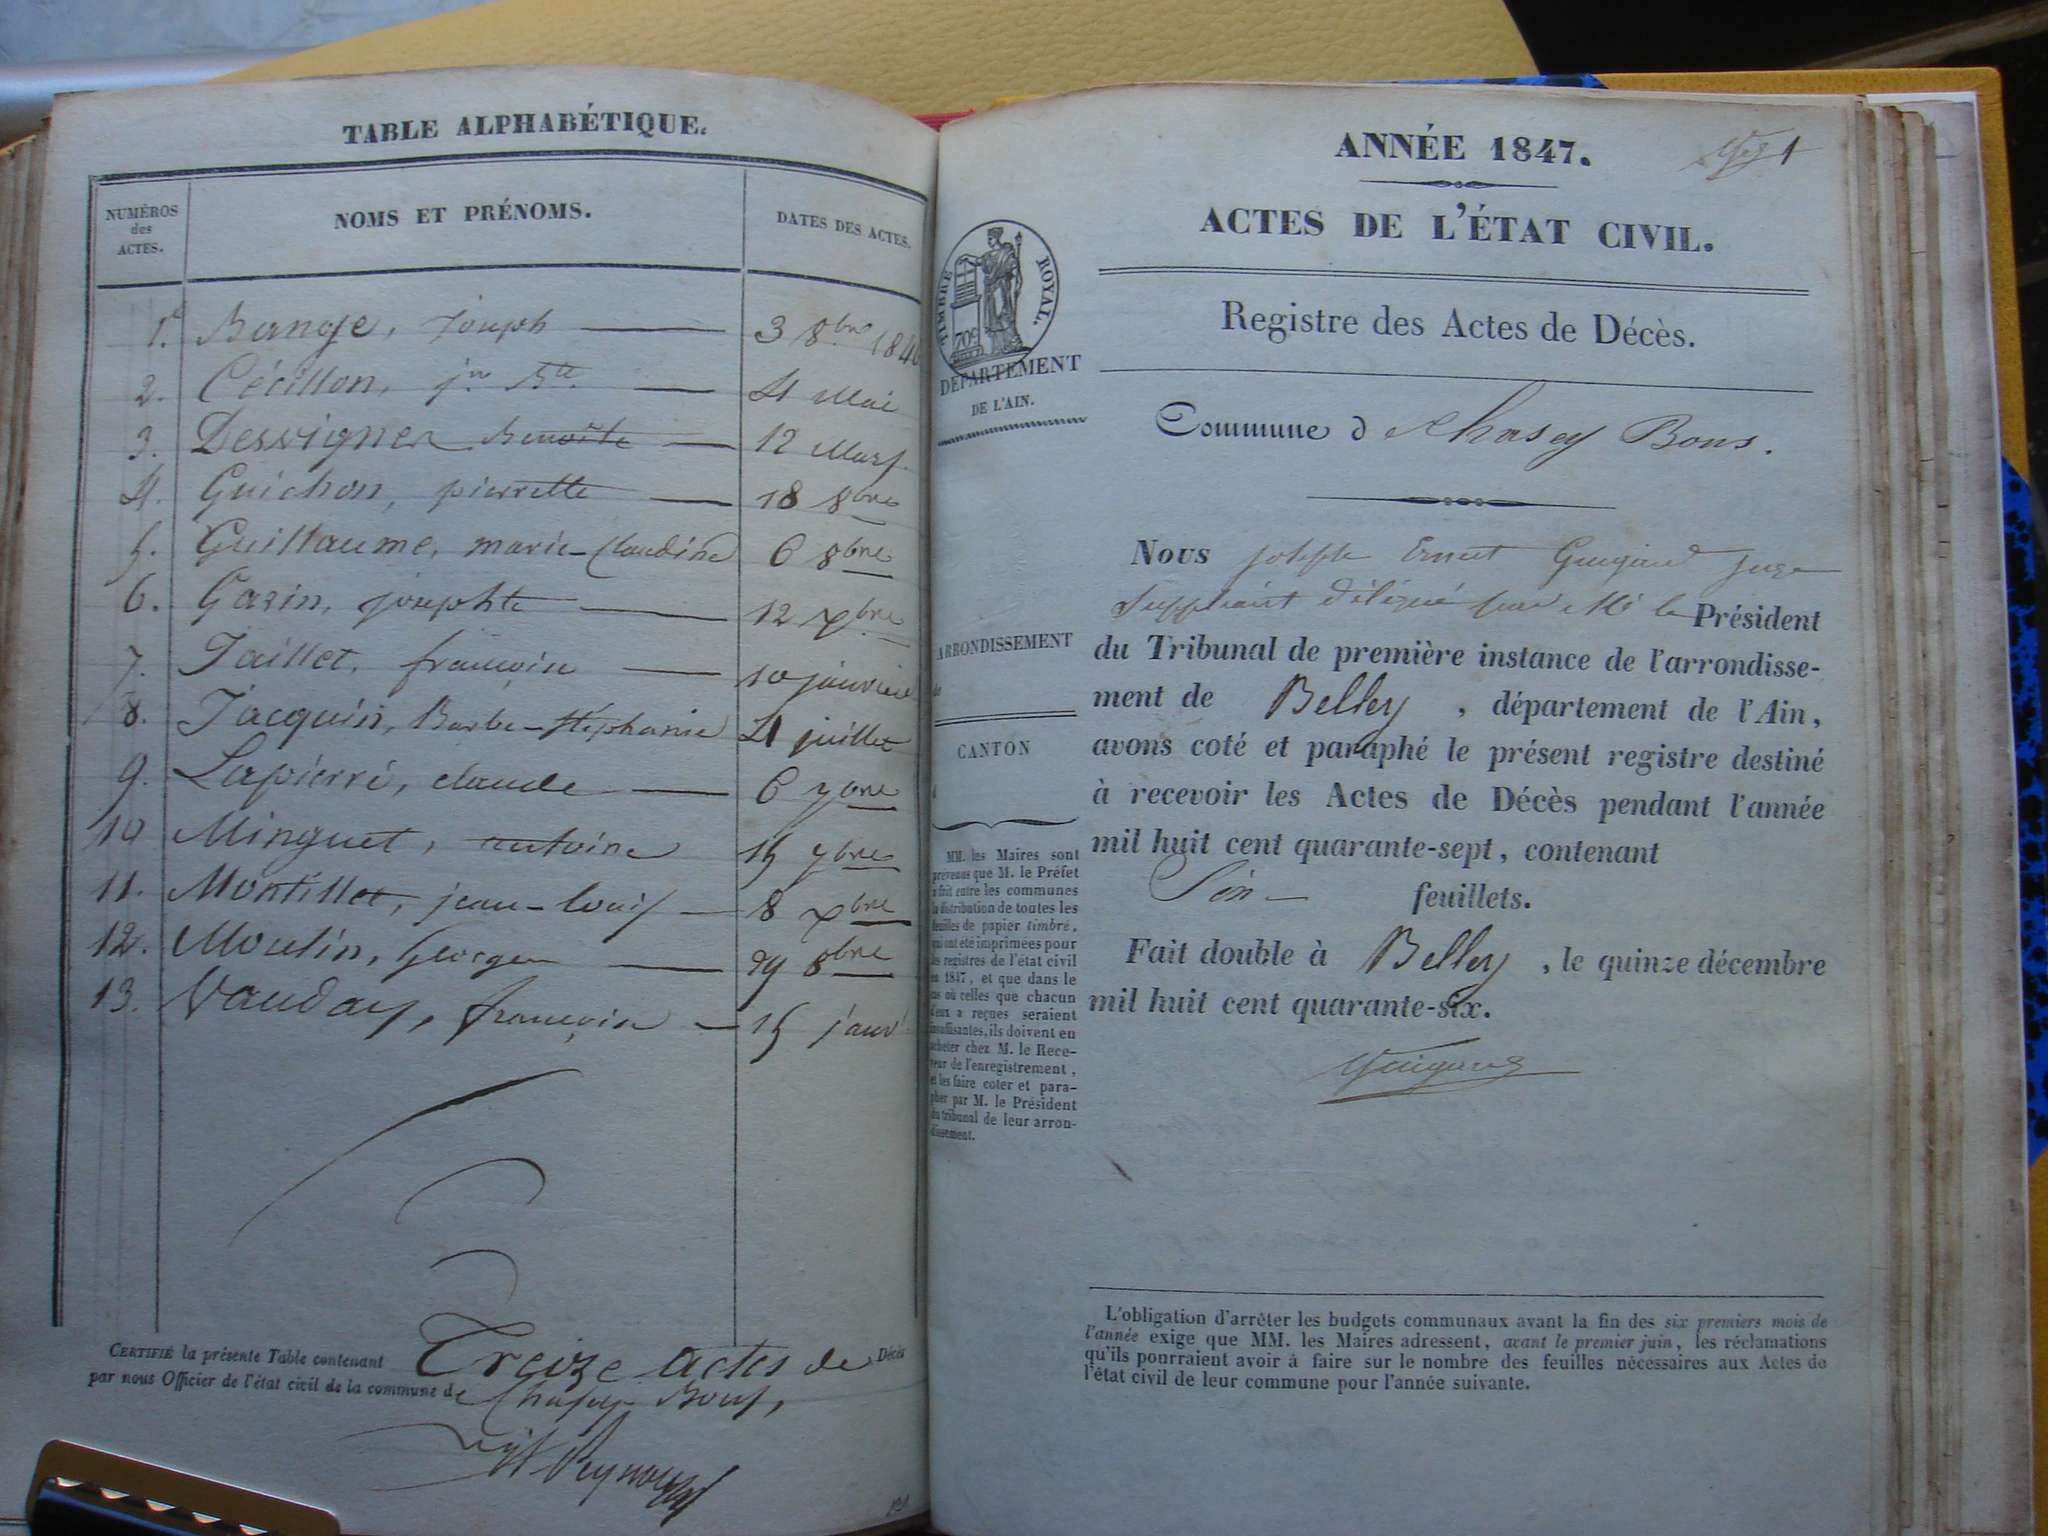 TABLE ALPHABÉTIQUE.
NUMÉROS des ACTES.
NOMS ET PRÉNOMS.
DATES DES ACTES.
1. Bange, Joseph 3 8bre 1846
2. Cécillon, jn Bte 4 Mai
3. Dessigner Benoîte 12 Mars
4. Guichon, pierrette 18 8bre
5. Guillaume, marie-Claudine 6 8bre
6. Garin, josephte 12 xbre
7. Jaillet, françoise 10 janvier
8. Jacquin, Barbe-Stéphanie 21 juillet
9. Lapierre, claude 6 7bre
10 Minguet, antoine 15 7bre
11. Montillet, jean-louis 8 xbre
12. Moulin, George 29 8bre
13. Vauday, françoise 15 janvr
CERTIFIÉ la présente Table contenant Treize actes de Décès
par nous Officier de l'état civil de la commune de Chasey Bons,
ANNÉE 1847.
1
ACTES DE L'ÉTAT CIVIL.
TIMBRE ROYAL.
70c
DÉPARTEMENT
DE L'AIN.
Registre des Actes de Décès.
Commune d Chasey Bons.
ARRONDISSEMENT
CANTON
MM. les Maires sont
prévenus que M. le Préfet
a fait entre les communes
la distribution de toutes les
feuilles de papier timbré,
qui ont été imprimées pour
les registres de l'état civil
en 1847, et que dans le
cas où celles que chacun
d'eux a reçues seraient
insuffisantes, ils doivent en
acheter chez M. le Rece-
veur de l'enregistrement,
et les faire coter et para-
pher par M. le Président
du tribunal de leur arron-
dissement.
Nous Joseph Ernest Guigard juge
Suppléant délégué par Mr le Président
du Tribunal de première instance de l'arrondisse-
ment de Belley, département de l'Ain,
avons coté et paraphé le présent registre destiné
à recevoir les Actes de Décès pendant l'année
mil huit cent quarante-sept, contenant
feuillets.
Fait double à Belley, le quinze décembre
mil huit cent quarante-six.
Guigard
L'obligation d'arrêter les budgets communaux avant la fin des six premiers mois de
l'année exige que MM. les Maires adressent, avant le premier juin, les réclamations
qu'ils pourraient avoir à faire sur le nombre des feuilles nécessaires aux Actes de
l'état civil de leur commune pour l'année suivante.